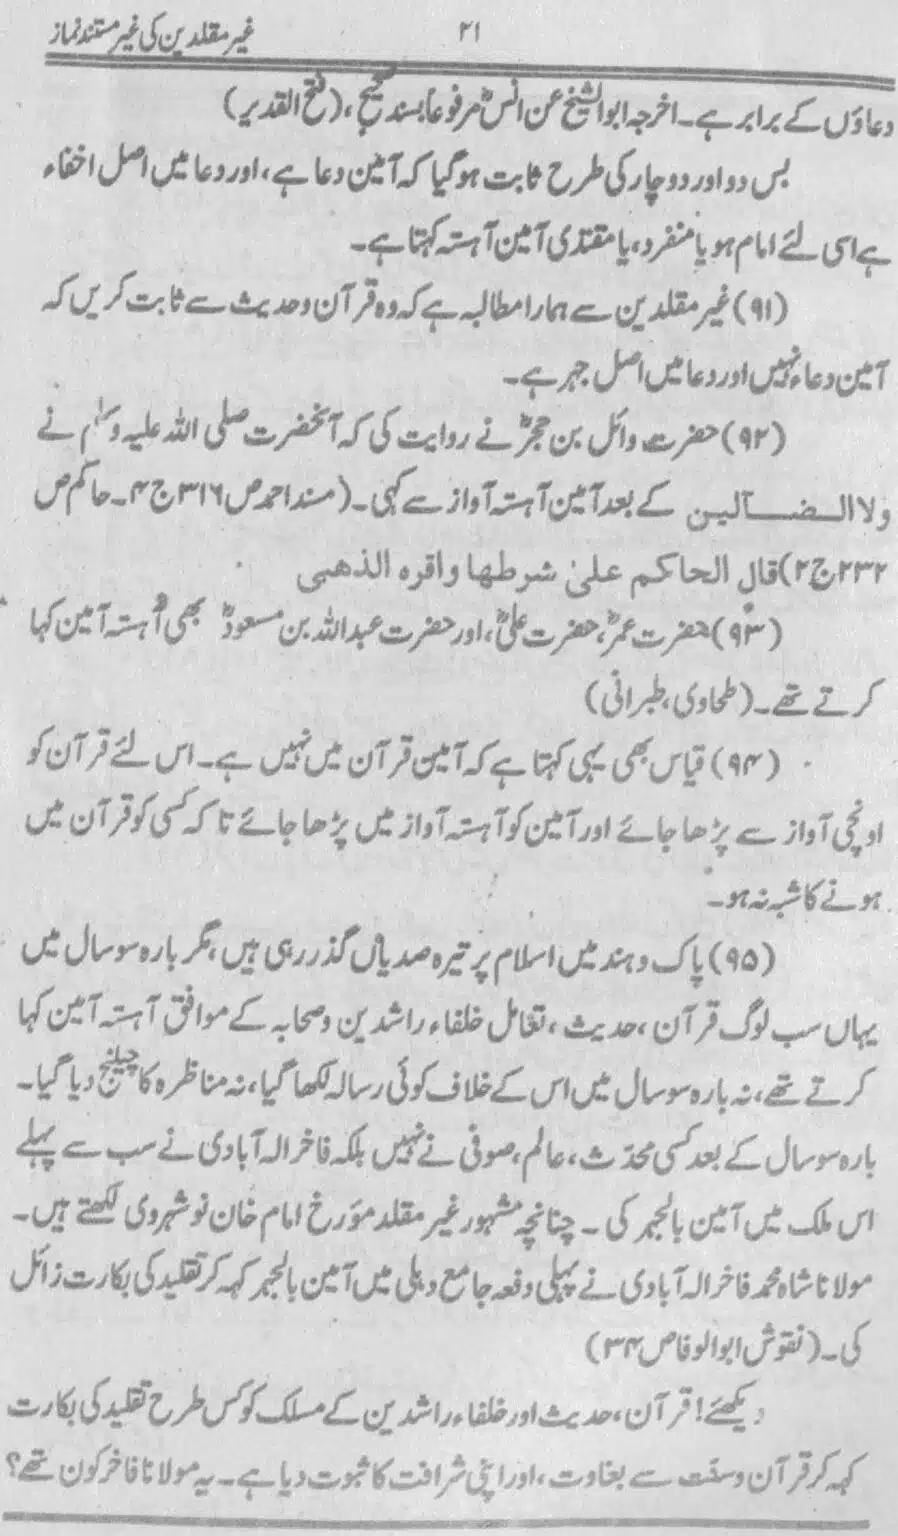 غیر مقلدین کی غیر مستند نماز ۲۱
دعاؤں کے برابر ہے۔ اخرجہ ابوالشیخ عن انسؓ مرفوعاً بسند صحیح، (فتح القدیر)
بس دو اور دو چار کی طرح ثابت ہوگیا کہ آمین دعا ہے، اور دعا میں اصل اخفاء
ہے اسی لئے امام ہو یا منفرد، یا مقتدی آمین آہستہ کہتا ہے۔
(۹۱) غیر مقلدین سے ہمارا مطالبہ ہے کہ وہ قرآن وحدیث سے ثابت کریں کہ
آمین دعاء نہیں اور دعا میں اصل جہر ہے۔
(۹۲) حضرت وائل بن حجرؓ نے روایت کی کہ آنحضرت صلی اللہ علیہ وسلم نے
ولا الــضــــآلین کے بعد آمین آہستہ آواز سے کہی۔ (مسند احمد ص ۳۱۶ ج ۴۔ حاکم ص
۲۳۲ ج ۲) قال الحاکم علیٰ شرطها واقره الذهبی
(۹۳) حضرت عمرؓ، حضرت علیؓ، اور حضرت عبداللہ بن مسعودؓ بھی آہستہ آمین کہا
کرتے تھے۔ (طحاوی، طبرانی)
(۹۴) قیاس بھی یہی کہتا ہے کہ آمین قرآن میں نہیں ہے۔ اس لئے قرآن کو
اونچی آواز سے پڑھا جائے اور آمین کو آہستہ آواز میں پڑھا جائے تاکہ کسی کو قرآن میں
ہونے کا شبہ نہ ہو۔
(۹۵) پاک وہند میں اسلام پر تیرہ صدیاں گذر رہی ہیں، مگر بارہ سو سال میں
یہاں سب لوگ قرآن، حدیث، تعامل خلفاء راشدین وصحابہ کے موافق آہستہ آمین کہا
کرتے تھے، نہ بارہ سو سال میں اس کے خلاف کوئی رسالہ لکھا گیا، نہ مناظرہ کا چیلنج دیا گیا۔
بارہ سو سال کے بعد کسی محدّث، عالم، صوفی نے نہیں بلکہ فاخر الہ آبادی نے سب سے پہلے
اس ملک میں آمین بالجہر کی۔ چنانچہ مشہور غیر مقلد مؤرخ امام خان نوشہروی لکھتے ہیں۔
مولانا شاہ محمد فاخر الہ آبادی نے پہلی دفعہ جامع دہلی میں آمین بالجہر کہہ کر تقلید کی بکارت زائل
کی۔ (نقوش ابوالوفا ص ۳۴)
دیکھئے! قرآن، حدیث اور خلفاء راشدین کے مسلک کو کس طرح تقلید کی بکارت
کہہ کر قرآن وسنّت سے بغاوت، اور اپنی شرافت کا ثبوت دیا ہے۔ یہ مولانا فاخر کون تھے؟